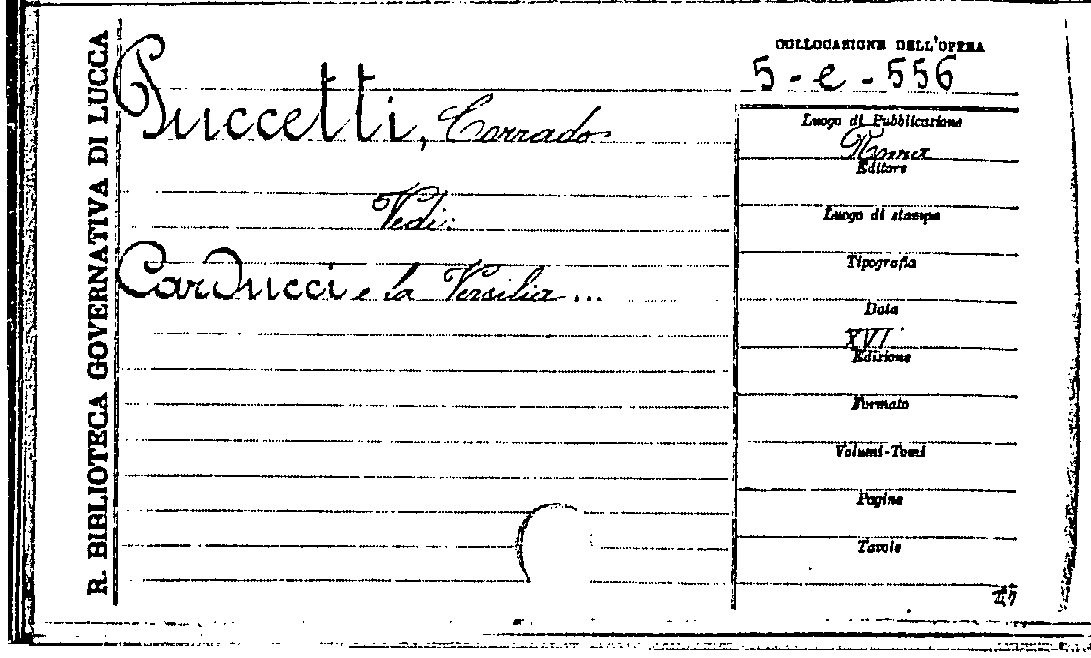 R. BIBLIOTECA GOVERNATIVA DI LUCCA
Puccetti, Corrado
Vedi:
Carducci e la Versilia...
COLLOCAZIONE DELL'OPERA
5-e-556
Luogo di Pubblicazione
Roma
Editore
Luogo di stampa
Tipografia
Data
XVI
Edizione
Formato
Volumi-Tomi
Pagine
Tavole